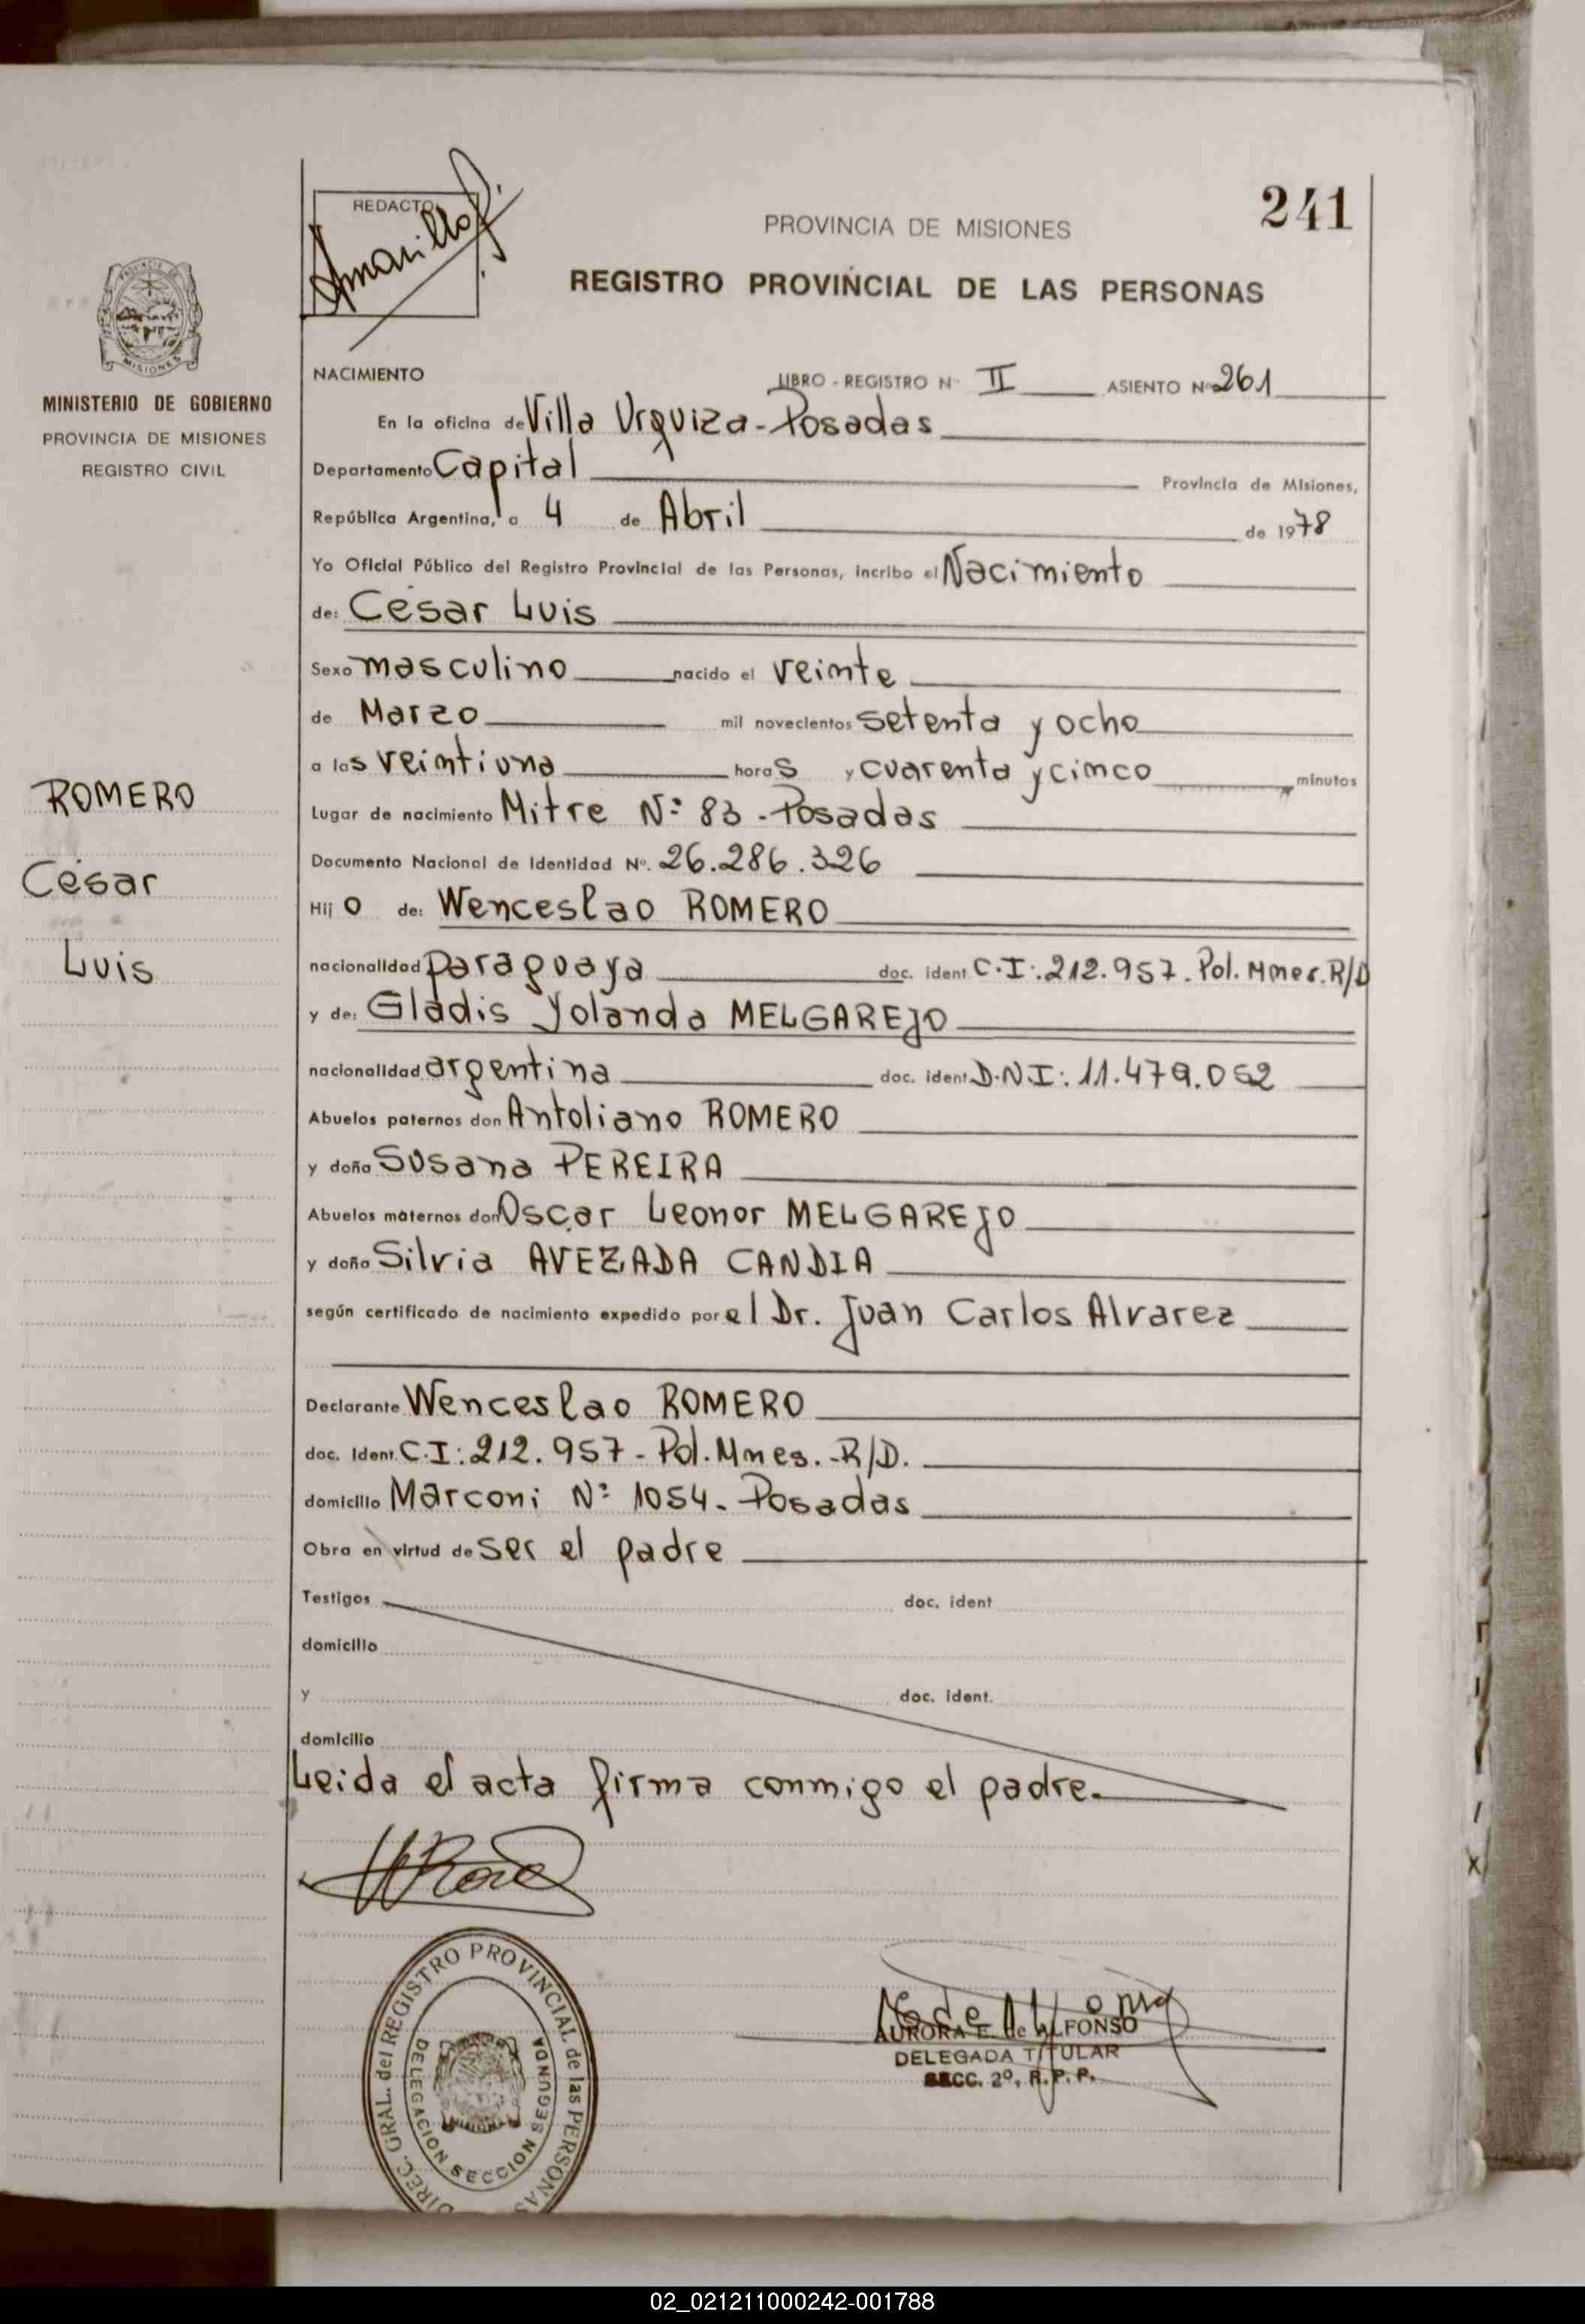 241
REDACTO
Amarilla
PROVINCIA DE MISIONES
REGISTRO PROVINCIAL DE LAS PERSONAS
MISIONES
MINISTERIO DE GOBIERNO
PROVINCIA DE MISIONES
REGISTRO CIVIL
ROMERO
César
Luis
NACIMIENTO LIBRO - REGISTRO N° II ASIENTO N° 261
En la oficina de Villa Urquiza - Posadas
Departamento Capital Provincia de Misiones,
República Argentina, a 4 de Abril de 1978
Yo Oficial Público del Registro Provincial de las Personas, incribo el Nacimiento
de: César Luis
Sexo masculino nacido el veinte
de Marzo mil novecientos setenta y ocho
a las veintiuna horas y cuarenta y cinco minutos
Lugar de nacimiento Mitre N° 83 - Posadas
Documento Nacional de Identidad N°. 26.286.326
Hij o de: Wenceslao ROMERO
nacionalidad paraguaya doc. ident. C.I:.212.957. Pol. Mnes. R/D
y de: Gladis Yolanda MELGAREJO
nacionalidad argentina doc. ident. D.N.I: 11.479.052
Abuelos paternos don Antoliano ROMERO
y doña Susana PEREIRA
Abuelos maternos don Oscar Leonor MELGAREJO
y doña Silvia AVEZADA CANDIA
según certificado de nacimiento expedido por el Dr. Juan Carlos Alvarez
Declarante Wenceslao ROMERO
doc. ident. C.I:.212.957 - Pol. Mnes. - R/D.
domicilio Marconi N° 1054 - Posadas
Obra en virtud de ser el padre
Testigos doc. ident
domicilio
y doc. ident.
domicilio
Leida el acta firma conmigo el padre.
AURORA E. de ALFONSO
DELEGADA TITULAR
SECC. 2º, R.P.P.
DIREC. GRAL. del REGISTRO PROVINCIAL de las PERSONAS
DELEGACION SECCION SEGUNDA
02_021211000242-001788